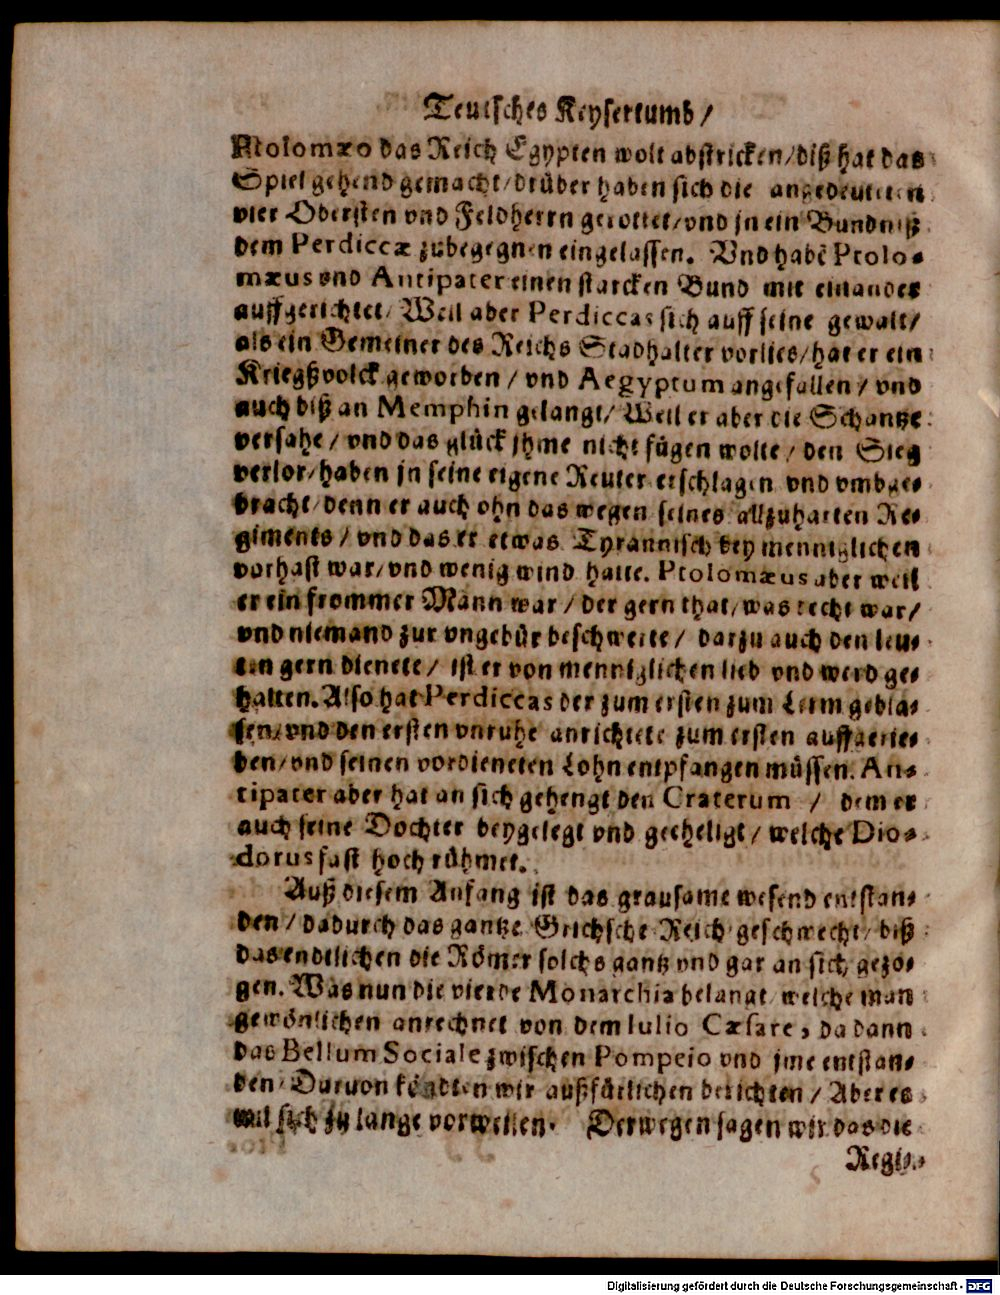 Teutsches Keysertumb /
Ptolomæo das Reich Egypten wolt abstricken / diß hat das
Spiel gehend gemacht / drüber haben sich die angedeuteten
vier Obersten vnd Feldherrn gerottet / vnd jn ein Bundniß
dem Perdiccæ zubegegnen eingelassen. Vnd habẽ Ptolo-
mæus vnd Antipater einen starcken Bund mit einander
auffgerichtet / Weil aber Perdiccas sich auff seine gewalt /
als ein Gemeiner des Reichs Stadhalter vorlies / hat er ein
Kriegßvolck geworben / vnd Aegyptum angefallen / vnd
auch biß an Memphin gelangt / Weil er aber die Schantze
versahe / vnd das glück jhme nicht fügen wolte / den Sieg
verlor / haben jn seine eigene Reuter erschlagen vnd vmbge-
bracht / denn er auch ohn das wegen seines allzuharten Re-
giments / vnd das er etwas Tyrannisch bey menniglichen
vorhast war / vnd wenig wind hatte. Ptolomæus aber weil
er ein frommer Mann war / der gern that / was recht war /
vnd niemand zur vngebür beschwerte / darzu auch den leu-
ten gern dienete / ist er von menniglichen lieb vnd werd ge-
halten. Also hat Perdiccas der zum ersten zum Lerm gebla-
sen / vnd den ersten vnruhe anrichtete zum ersten auffgerie-
ben / vnd seinen vordieneten Lohn entpfangen müssen. An-
tipater aber hat an sich gehengt den Craterum / dem er
auch seine Dochter beygelegt vnd geeheligt / welche Dio-
dorus fast hoch rühmet.
Auß diesem Anfang ist das grausame wesend entstan-
den / dadurch das gantze Grichsche Reich geschwecht / biß
das endtlichen die Römer solchs gantz vnd gar an sich gezo-
gen. Was nun die vierde Monarchia belangt welche man
gewönlichen anrechnet von dem Iulio Cæsare, da dann
das Bellum Sociale zwischen Pompeio vnd jme entstan-
den / Daruon köndten wir außfürlichen berichten / Aber es
wil sich zu lange vorweilen. Derwegen sagen wir das die
Regi-
Digitalisierung gefördert durch die Deutsche Forschungsgemeinschaft - DFG